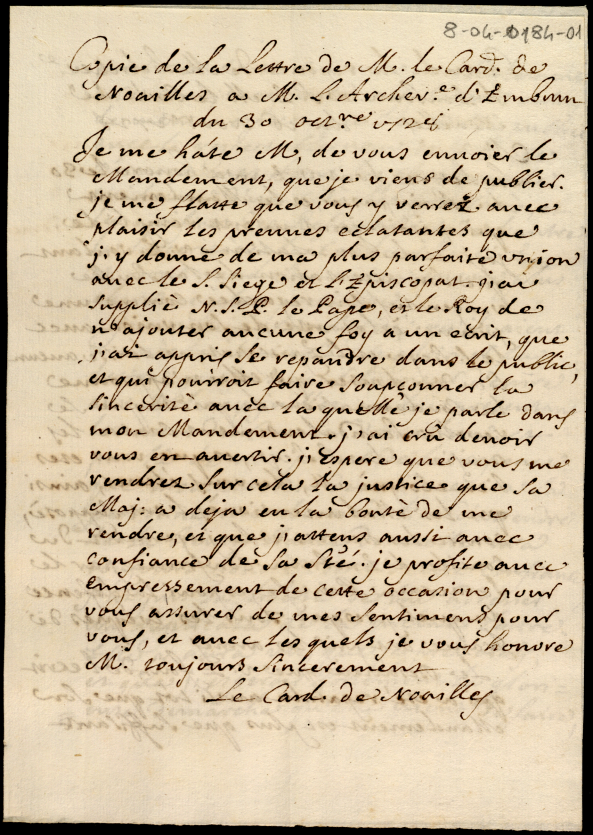 8-04-0184-01
Copie de la Lettre de M. le Card. de
Noailles a M. L'Archev.e d'Embrun
du 30 oct.re 1728
Je me hâte M, de vous envoier le
Mandement, que je viens de publier.
je me flatte que vous y verrez avec
plaisir les preuves eclatantes que
j'y donne de ma plus parfaite union
avec le S. Siege et l'Episcopat. j'ai
supplié N.S.P. le Pape, et le Roy de
n'ajouter aucune foy a un ecrit, que
j'ai appris se repandre dans le public,
et qui pouvroit faire soupçonner la
sincerité avec la quelle je parle dans
mon Mandement. j'ai crû devoir
vous en avertir. j'espere que vous me
rendrez sur cela la justice que sa
Maj: a deja eu la bonté de me
rendre, et que j'attens aussi avec
confiance de sa Sté. je profite avec
empressement de cette occasion pour
vous assurer de mes sentimens pour
vous, et avec les quels je vous honore
M. toujours sincerement
Le Card. de Noailles